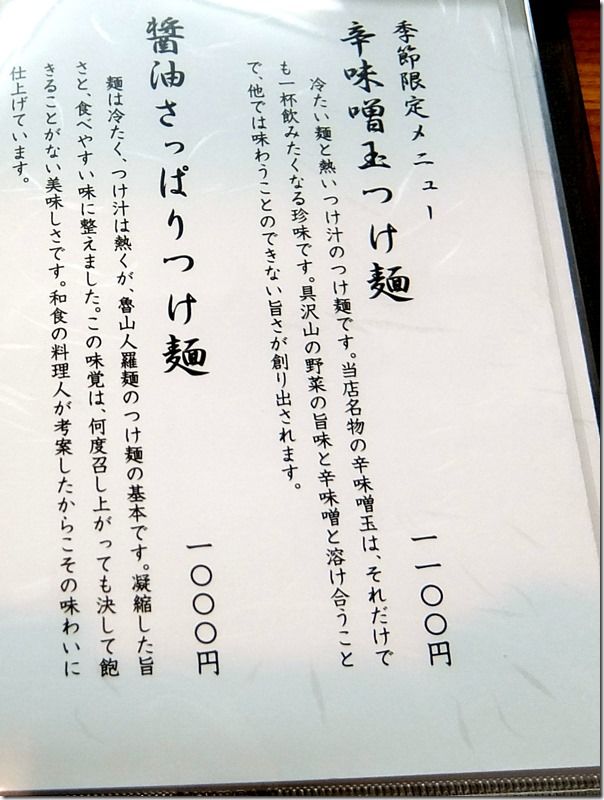 季節限定メニュー
辛味噌玉つけ麺
一一〇〇円
冷たい麺と熱いつけ汁のつけ麺です。当店名物の辛味噌玉は、それだけで
も一杯飲みたくなる珍味です。具沢山の野菜の旨味と辛味噌と溶け合うこと
で、他では味わうことのできない旨さが創り出されます。
醤油さっぱりつけ麺
一〇〇〇円
麺は冷たく、つけ汁は熱くが、魯山人羅麺のつけ麺の基本です。凝縮した旨
さと、食べやすい味に整えました。この味覚は、何度召し上がっても決して飽
きることがない美味しさです。和食の料理人が考案したからこその味わいに
仕上げています。